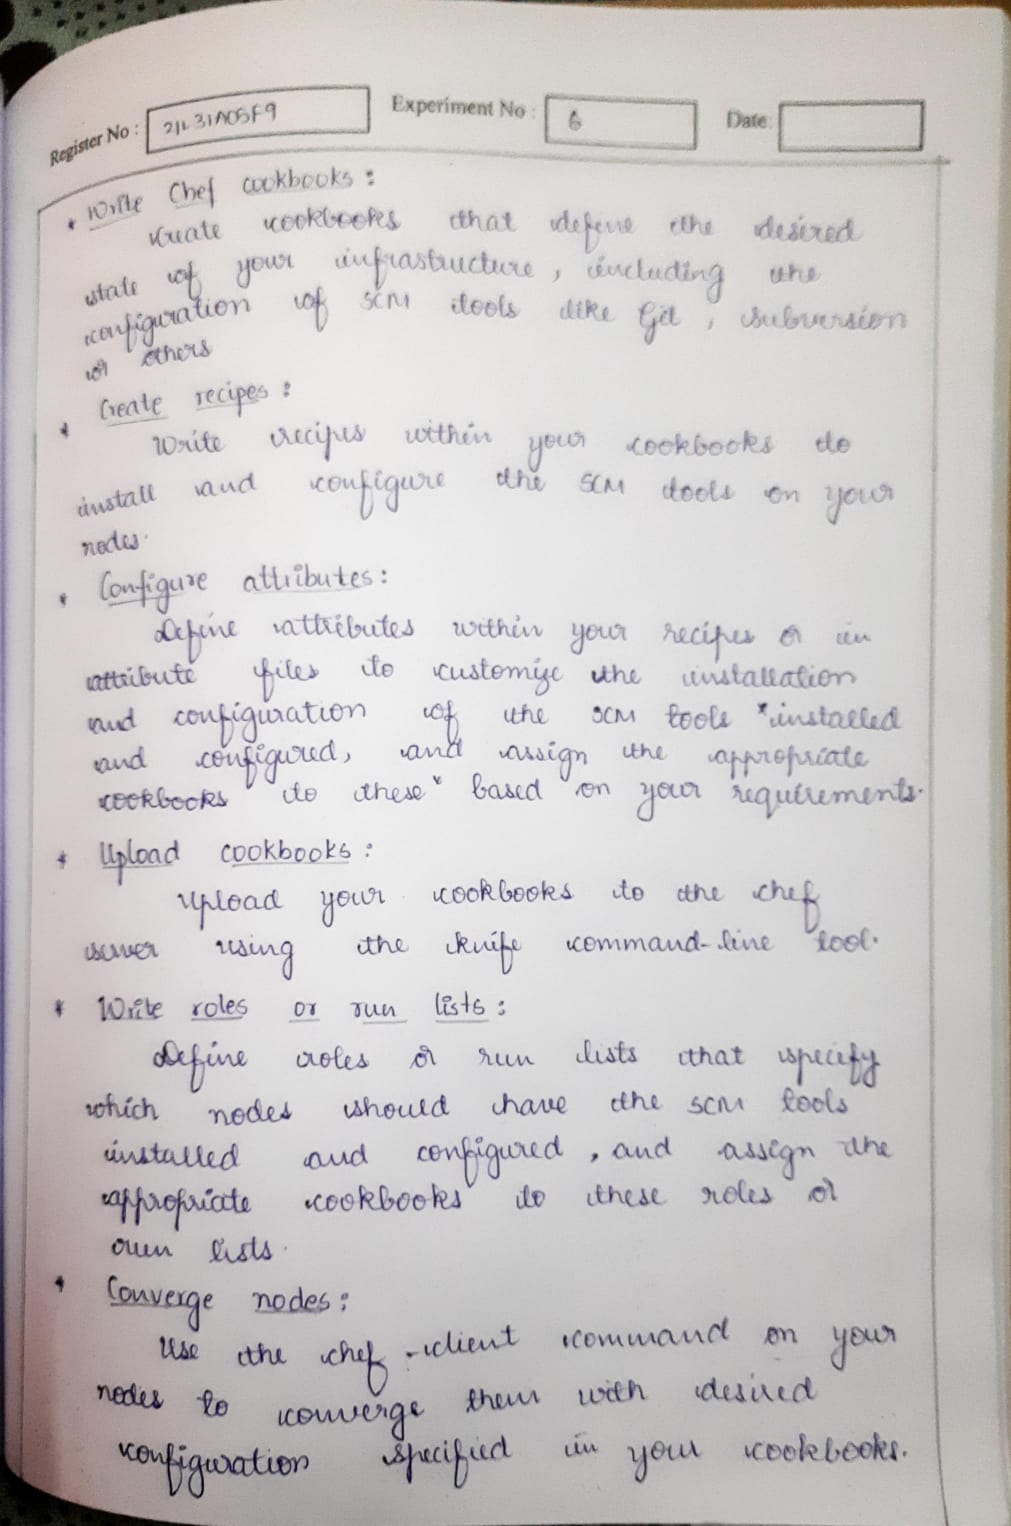 Register No : 21L31A05F9 Experiment No : 6 Date:
* Write Chef cookbooks :
Create cookbooks that define the desired
state of your infrastructure, including the
configuration of SCM tools like Git, subversion
or others
* Create recipes :
Write recipes within your cookbooks to
install and configure the SCM tools on your
nodes.
* Configure attributes :
Define attributes within your recipes or in
attribute files to customize the installation
and configuration of the SCM tools "installed
and configured, and assign the appropriate
cookbooks to these" based on your requirements.
* Upload cookbooks :
Upload your cookbooks to the chef
server using the knife command-line tool.
* Write roles or run lists :
Define roles or run lists that specify
which nodes should have the SCM tools
installed and configured, and assign the
appropriate cookbooks to these roles or
run lists.
* Converge nodes :
Use the chef-client command on your
nodes to converge them with desired
configuration specified in your cookbooks.